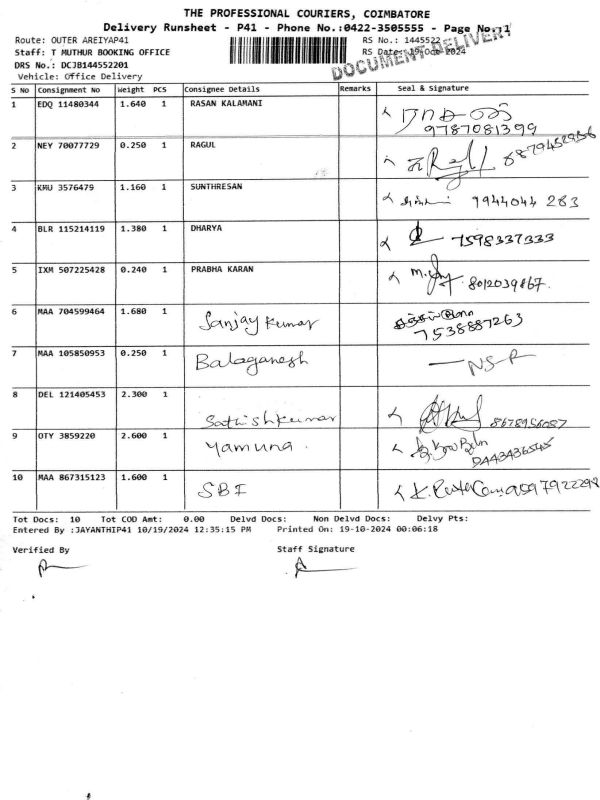 THE PROFESSIONAL COURIERS, COIMBATORE
Delivery Runsheet - P41 - Phone No.:0422-3505555 - Page No.:1
Route: OUTER AREIYAP41 RS No.: 1445522
Staff: T MUTHUR BOOKING OFFICE RS Date: 19-Oct-2024
DOCUMENT DELIVERY
DRS No.: DCJB144552201
Vehicle: Office Delivery
S No Consignment No Weight PCS Consignee Details Remarks Seal & Signature
1 EDQ 11480344 1.640 1 RASAN KALAMANI
9787081399
2 NEY 70077729 0.250 1 RAGUL
3 KMU 3576479 1.160 1 SUNTHRESAN
9944044 283
4 BLR 115214119 1.380 1 DHARYA
7598337333
5 IXM 507225428 0.240 1 PRABHA KARAN
8012039867.
6 MAA 704599464 1.680 1 Sanjay kumar
7538887263
7 MAA 105850953 0.250 1 Balaganesh
8 DEL 121405453 2.300 1 Sathishkumar
8678956087
9 OTY 3859220 2.600 1 Yamuna.
10 MAA 867315123 1.600 1 SBI
Tot Docs: 10 Tot COD Amt: 0.00 Delvd Docs: Non Delvd Docs: Delvy Pts:
Entered By :JAYANTHIP41 10/19/2024 12:35:15 PM Printed On: 19-10-2024 00:06:18
Verified By Staff Signature